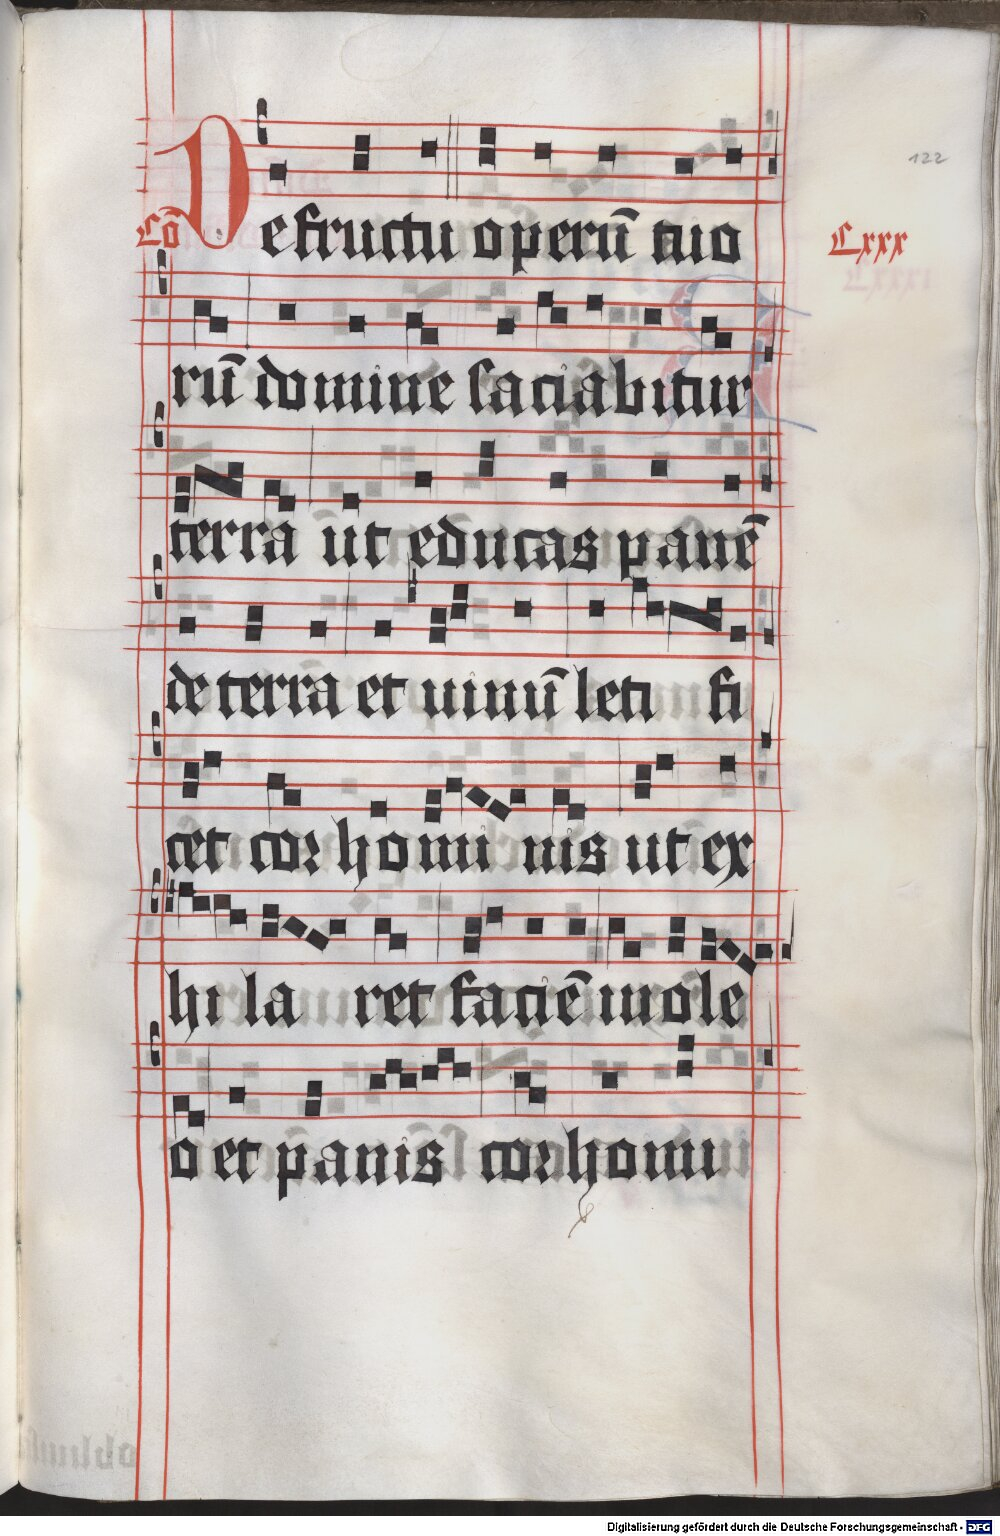 122
De fructu operū tuo
Cō
Cxxx
rū domine saciabitur
terra ut educas panē
de terra et uinū leti fi
cet cor homi nis ut ex
hi la ret faciē in ole
o et panis cor homi
Digitalisierung gefördert durch die Deutsche Forschungsgemeinschaft - DFG